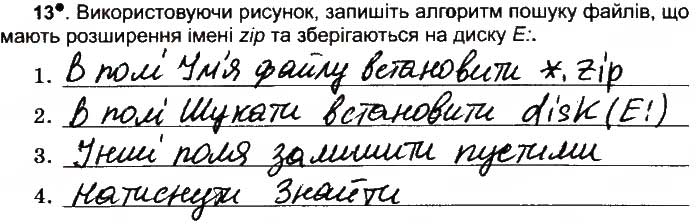 13•. Використовуючи рисунок, запишіть алгоритм пошуку файлів, що
мають розширення імені zip та зберігаються на диску E:.
1. В полі Ім'я файлу встановити *.zip
2. В полі Шукати встановити disk(E:)
3. Інші поля залишити пустими
4. Натиснути Знайти